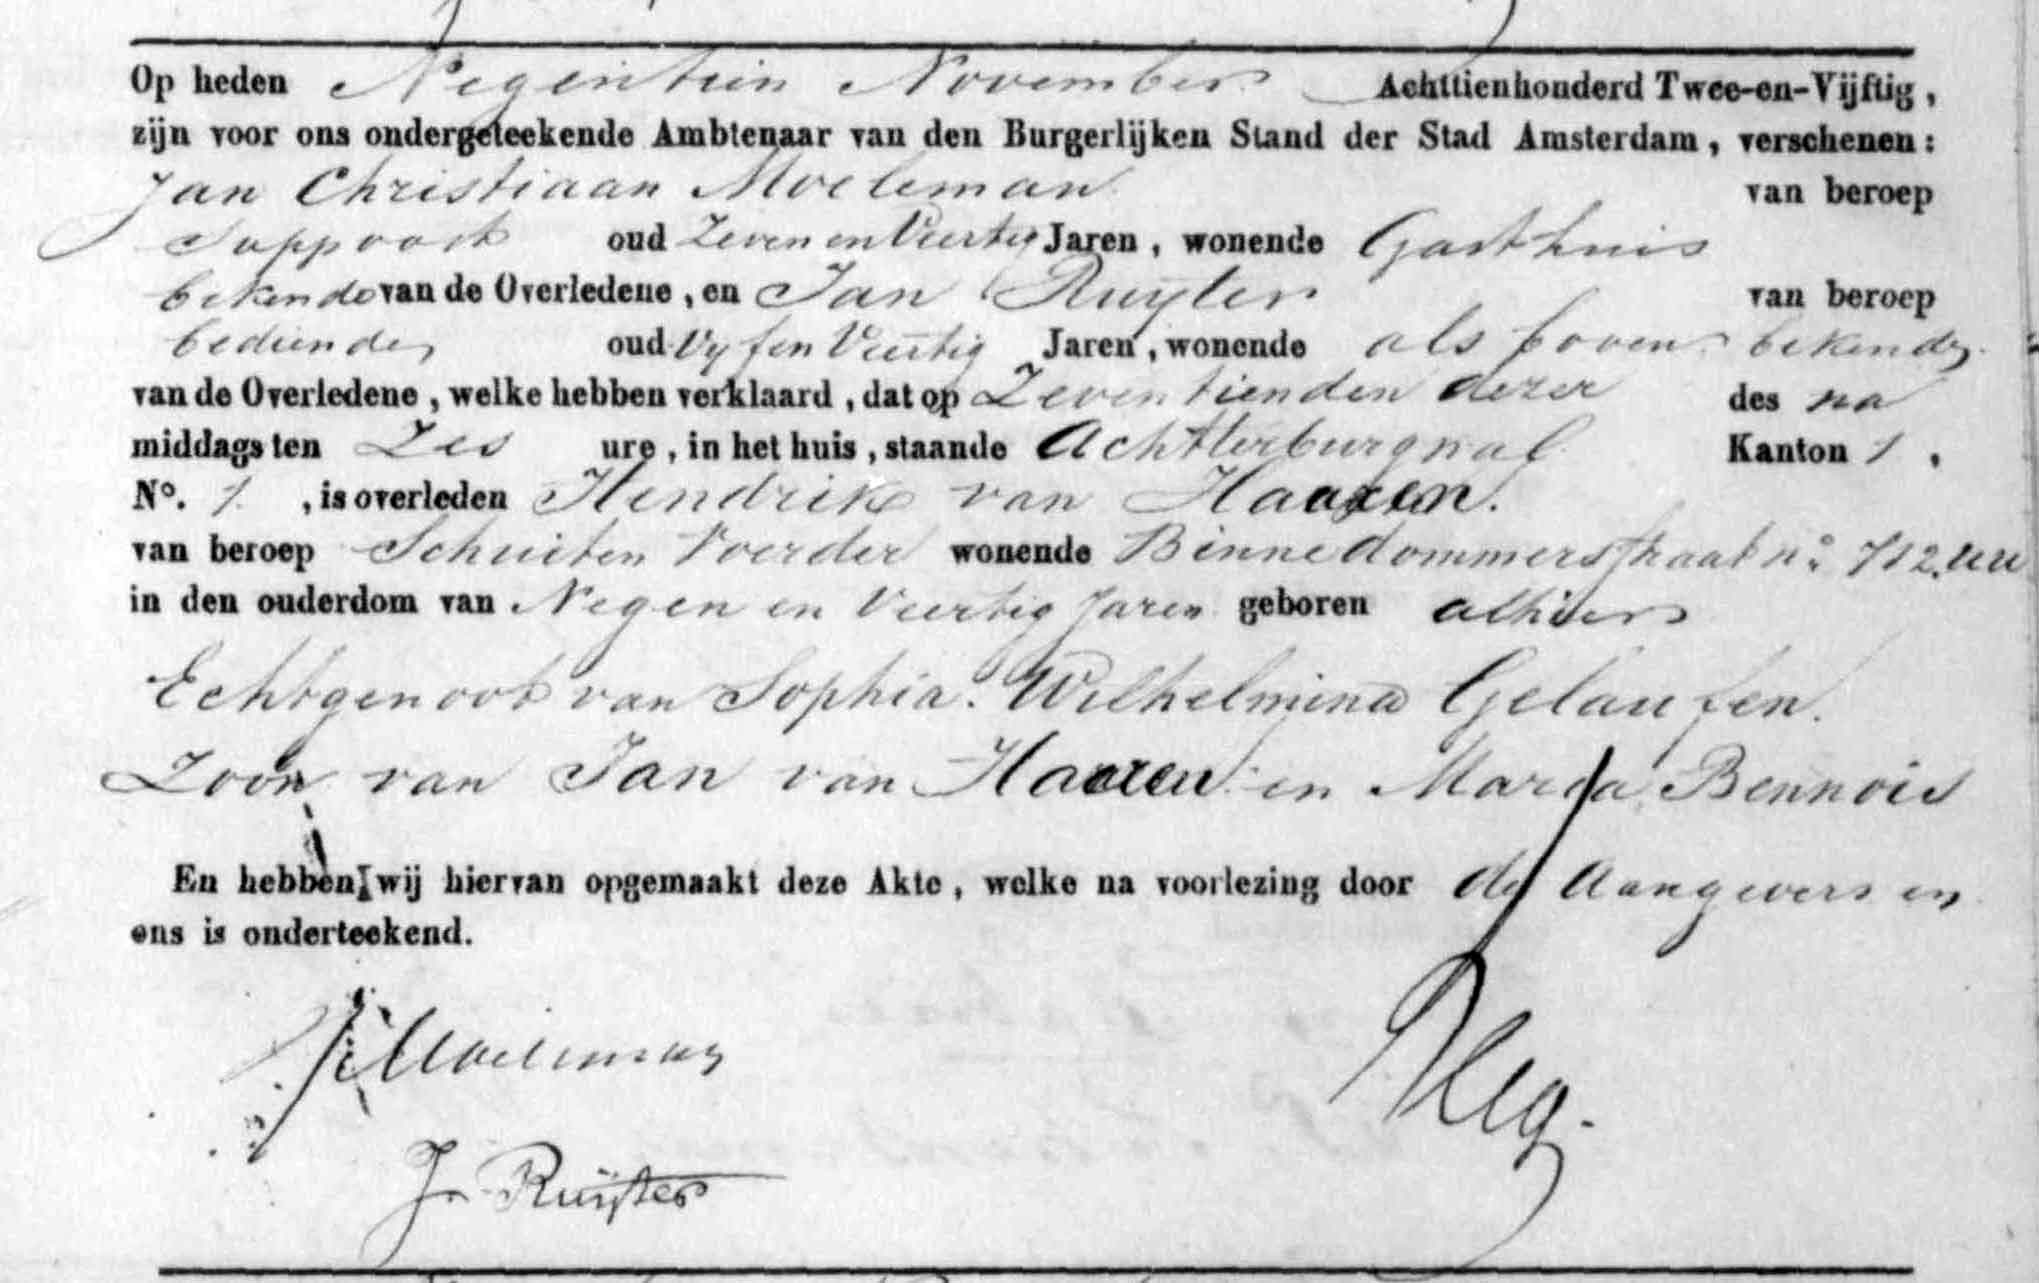 Op heden Negentien November Achttienhonderd Twee-en-Vijftig,
zijn voor ons ondergeteekende Ambtenaar van den Burgerlijken Stand der Stad Amsterdam, verschenen:
Jan Christiaan Moeleman van beroep
Suppoost oud Zeven en Veertig Jaren, wonende Gasthuis
bekende van de Overledene, en Jan Ruyter van beroep
bediende, oud Vyf en Veertig Jaren, wonende als boven bekende
van de Overledene, welke hebben verklaard, dat op Zeventienden dezer des na
middags ten Zes ure, in het huis, staande Achterburgwal Kanton 1,
No. 1, is overleden Hendrik van Haaren.
van beroep Schuiten Voerder wonende Binnedommerstraat no 712
in den ouderdom van Negen en Veertig Jaren geboren alhier
Echtgenoot van Sophia Wilhelmina Gelaufen.
Zoon van Jan van Haaren en Maria Bennois
En hebben wij hiervan opgemaakt deze Akte, welke na voorlezing door de Aangevers en
ons is onderteekend.
Moeleman
J. Ruijter